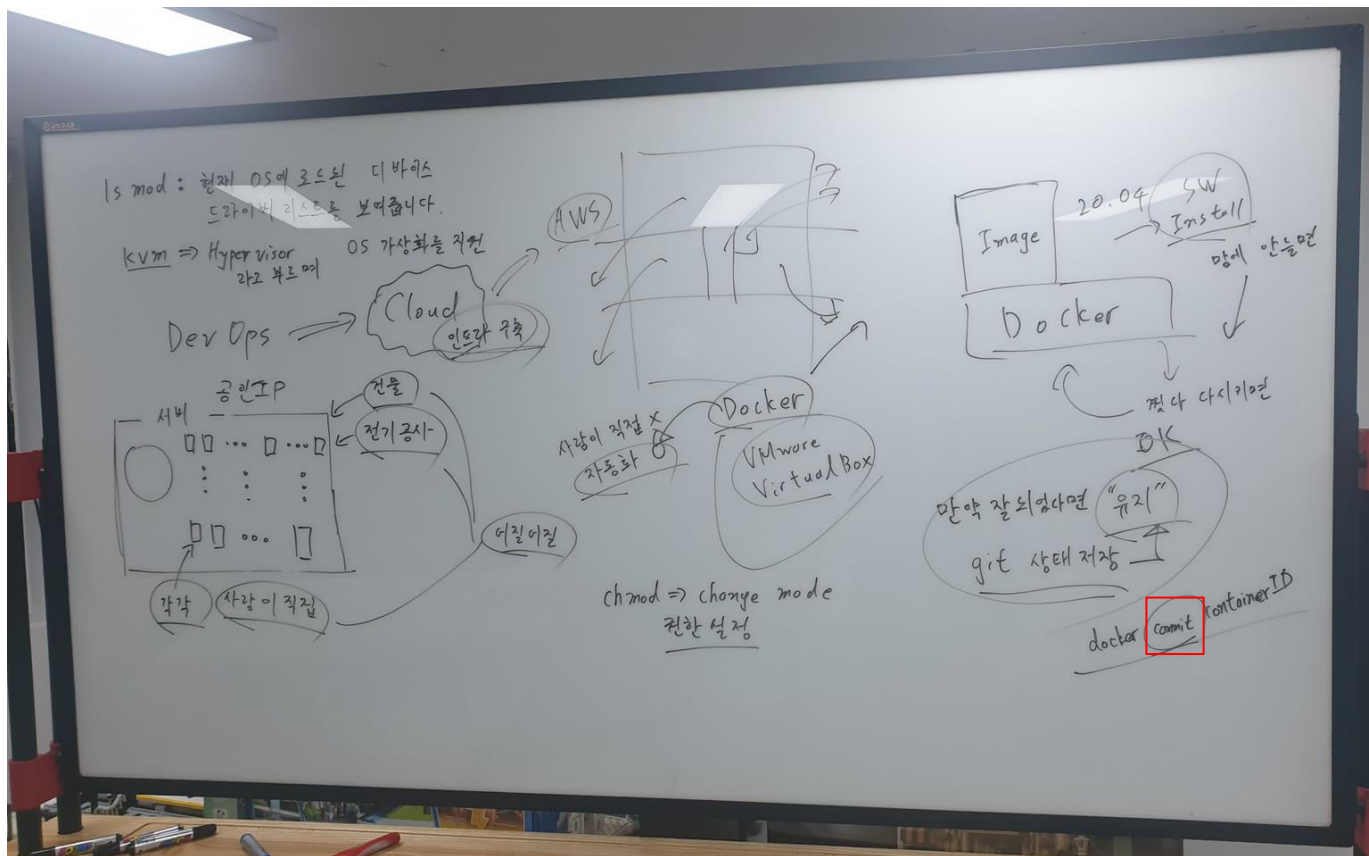 ls mod : 현재 OS에 로드된 디바이스
드라이버 리스트를 보여줍니다.
kvm => Hypervisor OS 가상화를 지원
라고 부르며
DevOps
Cloud
인프라 구축
AWS
공인IP
서버
건물
전기공사
각각
사람이 직접
어질어질
사람이 직접 X
자동화
Docker
VMware
VirtualBox
chmod => change mode
권한 설정
Image
20.04
SW
Install
맘에 안들면
Docker
껐다 다시키면
OK
만약 잘되었다면 "유지"
git 상태저장
docker commit containerID